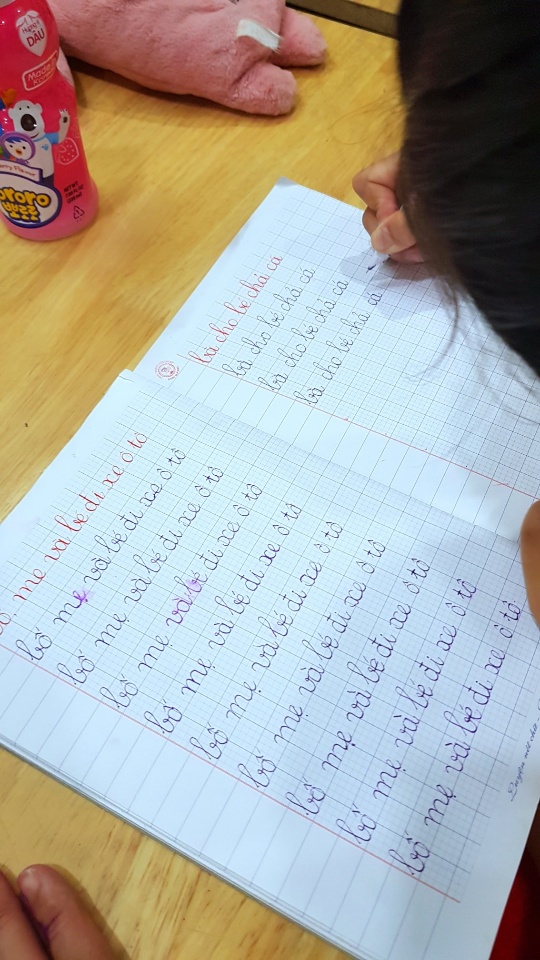 HƯƠNG
DÂU
Made in
Korea
ororo
뽀로로
mẹ và bé đi xe ô tô
bố mẹ và bé đi xe ô tô
bố mẹ và bé đi xe ô tô
bố mẹ và bé đi xe ô tô
bố mẹ và bé đi xe ô tô
bố mẹ và bé đi xe ô tô
bố mẹ và bé đi xe ô tô
bố mẹ và bé đi xe ô tô
bố mẹ và bé đi xe ô tô
bố mẹ và bé đi xe ô tô
Luyện nét chữ
bà cho bé chả cá
bà cho bé chả cá
bà cho bé chả cá
bà cho bé chả cá